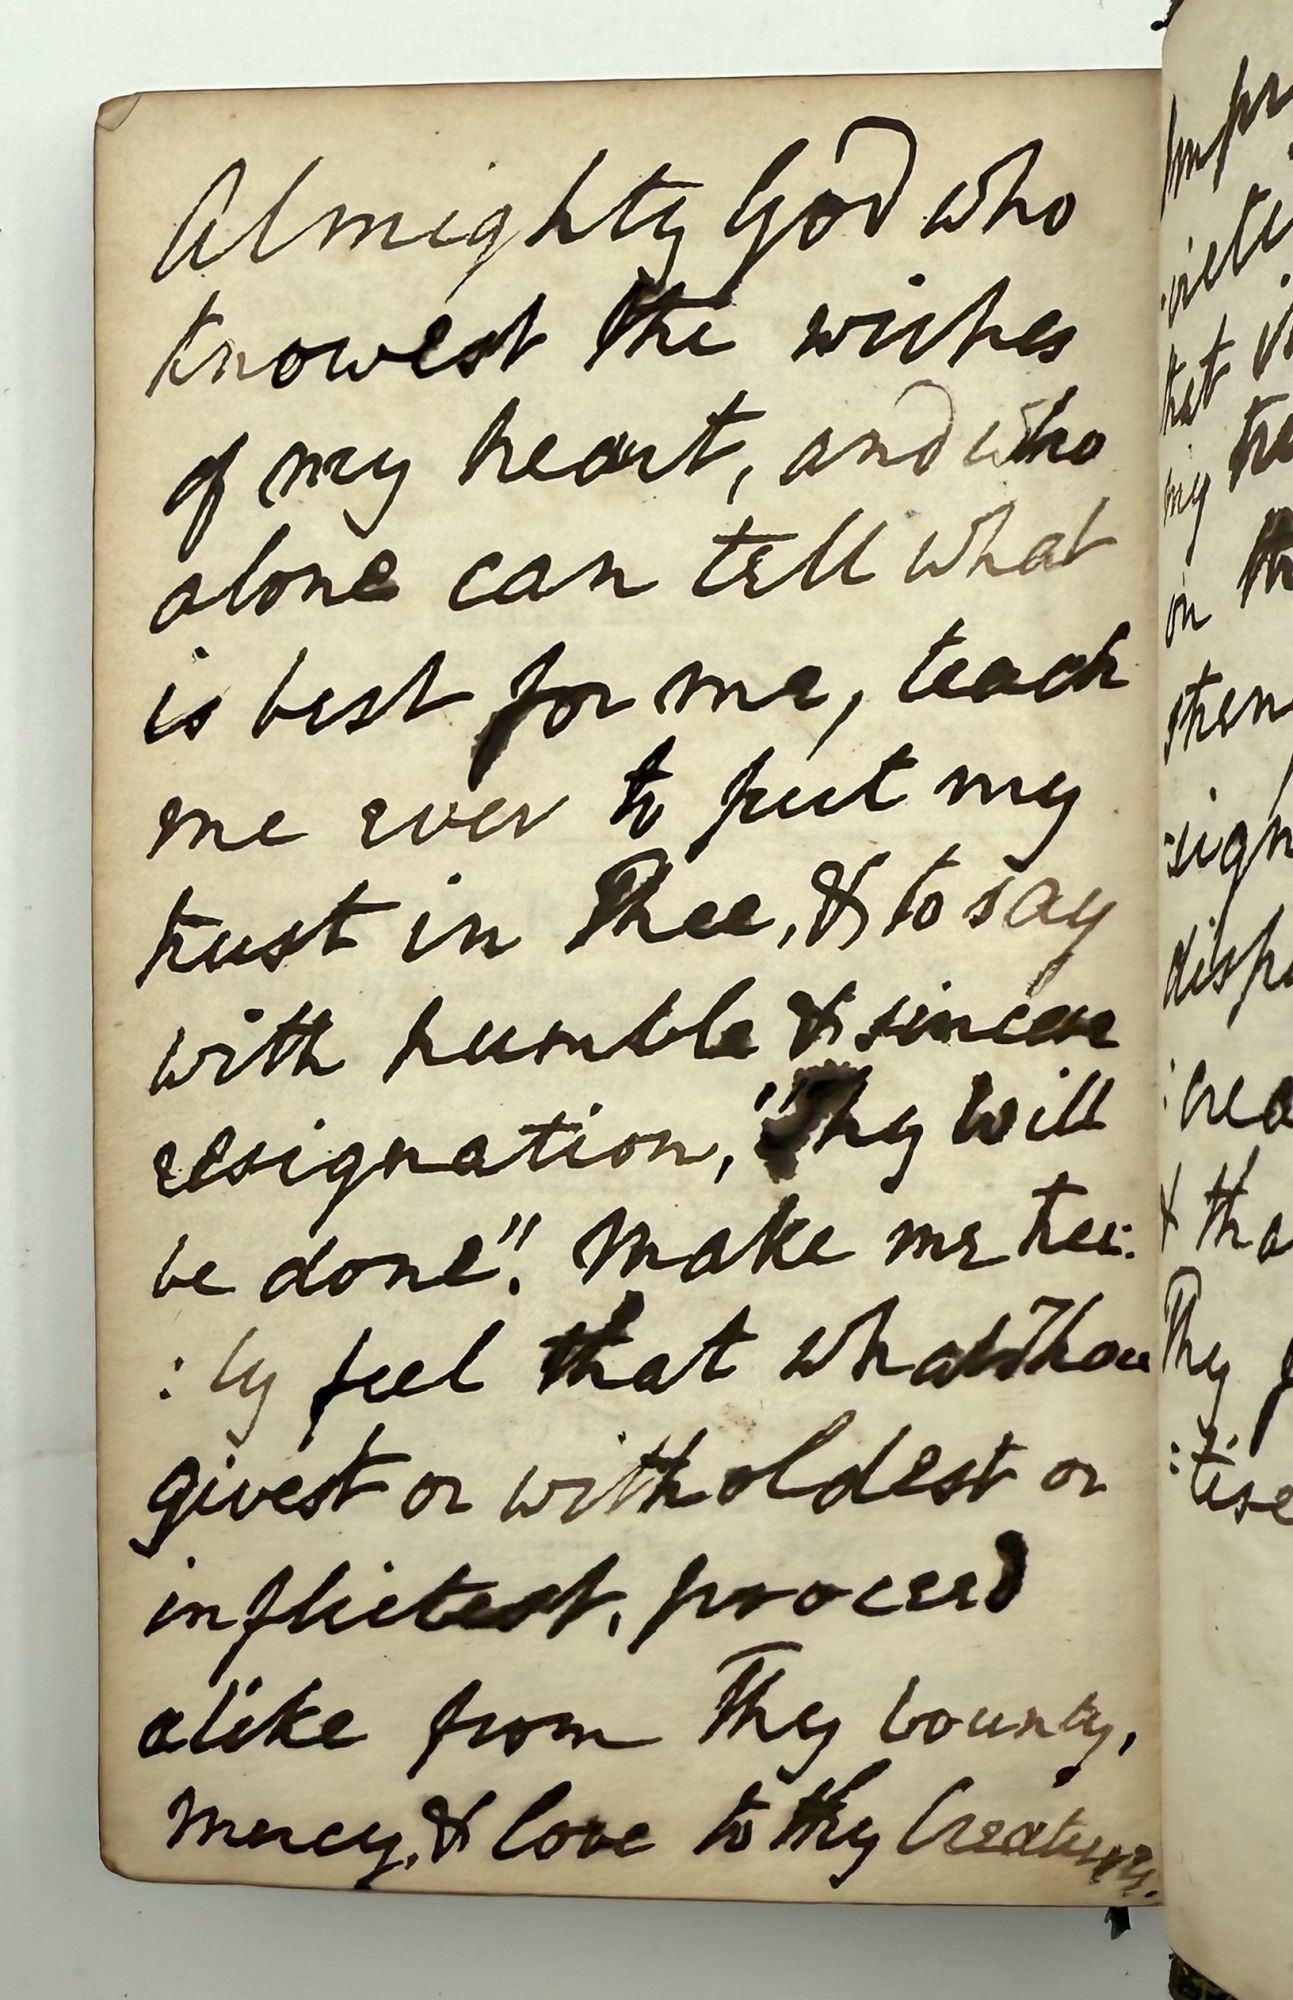 Almighty God who
knowest the wishes
of my heart, and who
alone can tell what
is best for me, teach
me ever to put my
trust in Thee, & to say
with humble & sincere
resignation, "Thy Will
be done". Make me tru:
:ly feel that what Thou
givest or witholdest or
inflictest, proceed
alike from Thy bounty,
Mercy, & love to thy Creatures.
that
my
in
Thy